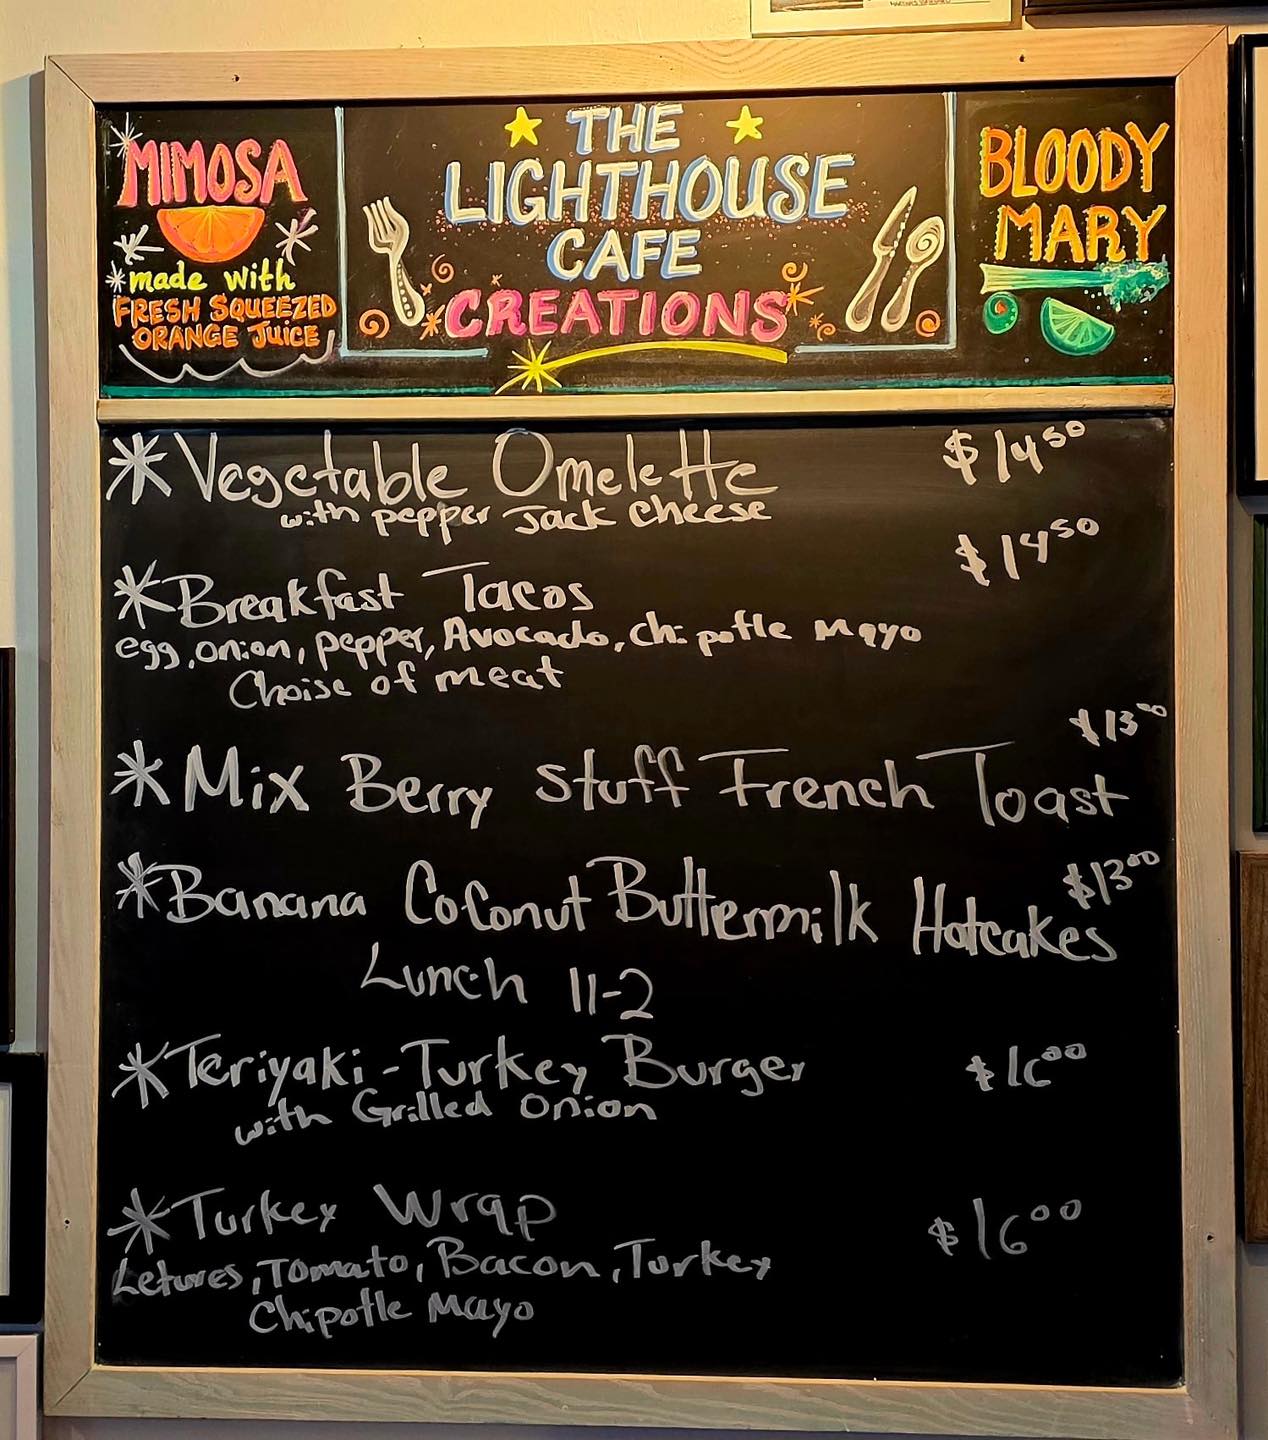 MIMOSA
made with
FRESH SQUEEZED
ORANGE JUICE
THE
LIGHTHOUSE
CAFE
CREATIONS
BLOODY
MARY
*Vegetable Omelette $14 50
with pepper Jack Cheese
*Breakfast Tacos $14 50
egg, onion, pepper, Avocado, chipotle mayo
Choise of meat
$13 00
*Mix Berry Stuff French Toast
*Banana Coconut Buttermilk Hotcakes $13 00
Lunch 11-2
*Teriyaki-Turkey Burger $16 00
with Grilled Onion
*Turkey Wrap $16 00
Tomato, Bacon, Turkey
Chipotle Mayo